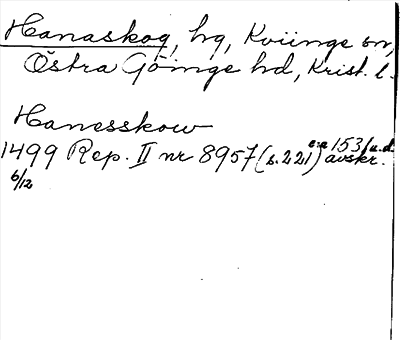 Hanaskog, hg, Kviinge sn,
Östra Göinge hd, Krist. l.
Hanesskow
1499 Rep. II nr 8957 (s. 221) ca 1531 u.d. avskr.
6/12